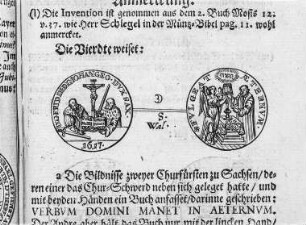 Anmerckung.
(1) Die Invention ist genommen aus dem 2. Buch Mosis 12.
v. 37. wie Herr Schlegel in der Müntz-Bibel pag. 11. wohl
anmercket.
Die Vierdte weiset:
3)
8.
Wal.
1627.
a Die Bildnisse zweyer Churfürsten zu Sachsen/ de-
ren einer das Chur-Schwerd neben sich geleget hatte / und
mit beyden Händen ein Buch anfasset/ darinne geschrieben:
VERBUM DOMINI MANET IN AETERNUM.
Der Andre aber hält das Buch nur mit der lincken Hand/